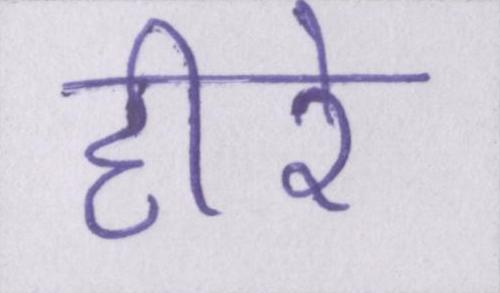 हीरे